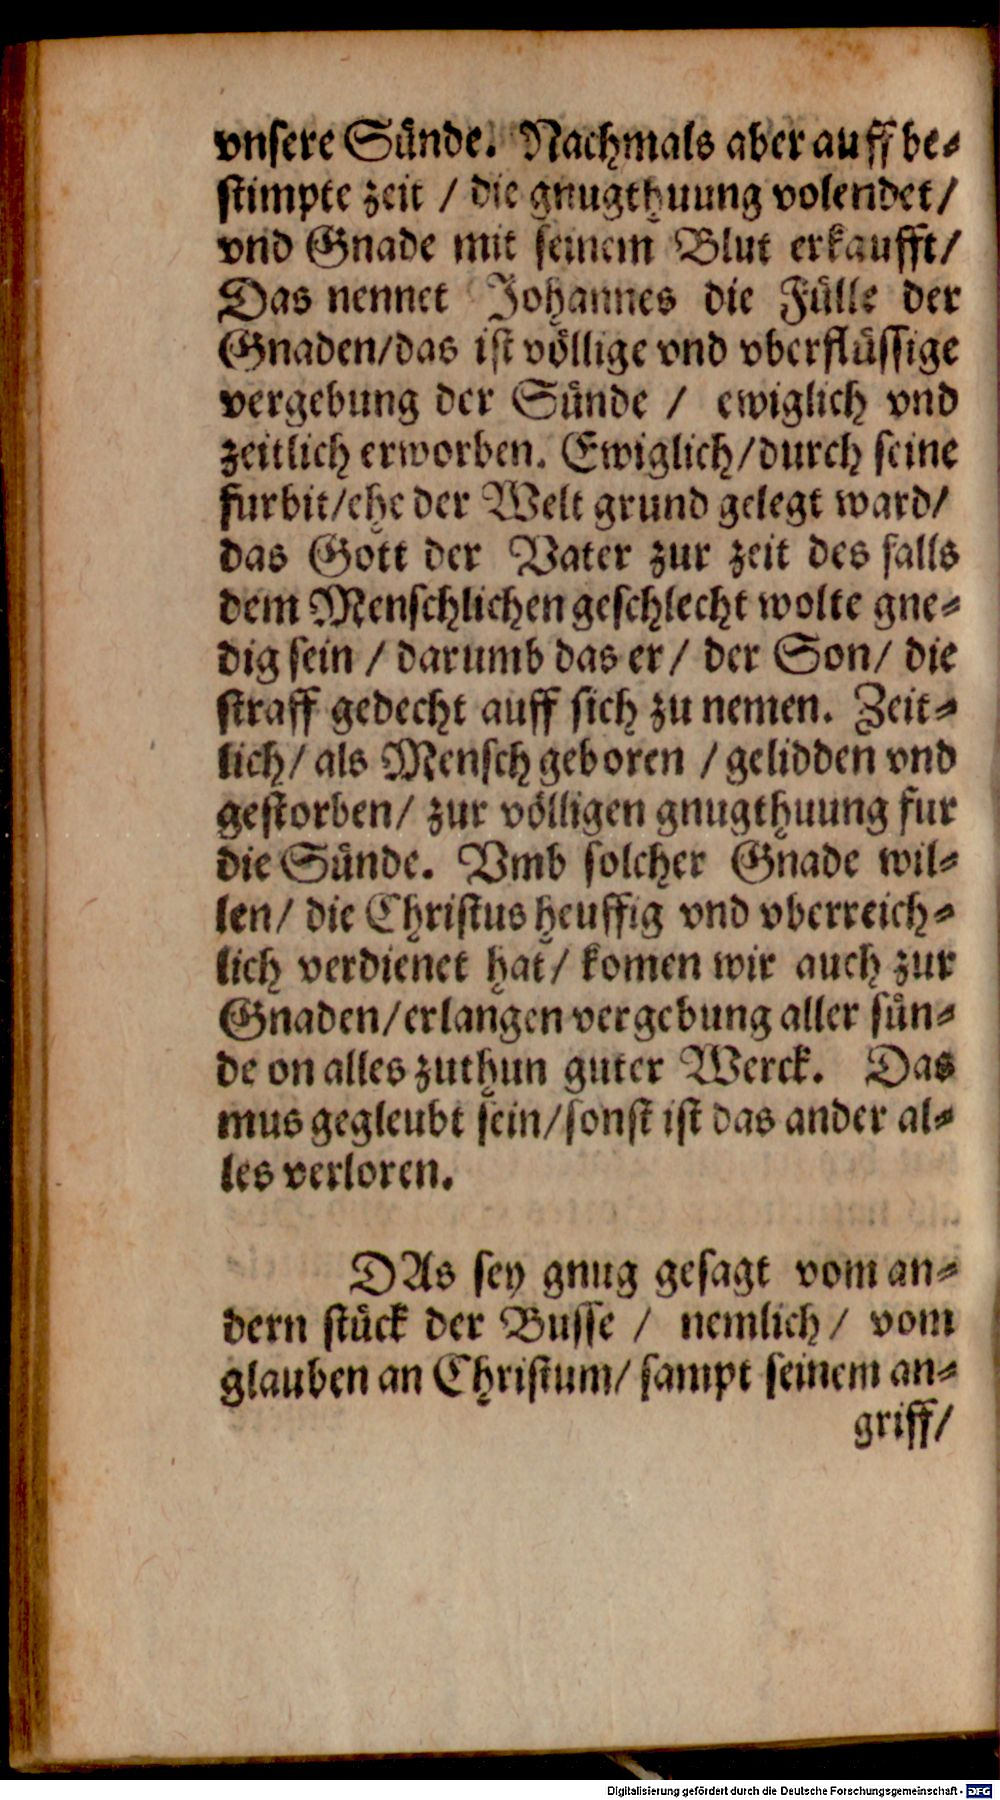 vnſere Suͤnde. Nachmals aber auff be⸗
ſtimpte zeit / die gnugthuung volendet/
vnd Gnade mit ſeinem Blut erkaufft/
Das nennet Johannes die Fuͤlle der
Gnaden/das iſt voͤllige vnd vberfluͤſſige
vergebung der Suͤnde / ewiglich vnd
zeitlich erworben. Ewiglich/durch ſeine
furbit/ehe der Welt grund gelegt ward/
das Gott der Vater zur zeit des falls
dem Menſchlichen geſchlecht wolte gne⸗
dig ſein / darumb das er/ der Son/ die
ſtraff gedecht auff ſich zu nemen. Zeit⸗
lich/ als Menſch geboren / gelidden vnd
geſtorben/ zur voͤlligen gnugthuung fur
die Suͤnde. Vmb ſolcher Gnade wil⸗
len/ die Chriſtus heuffig vnd vberreich⸗
lich verdienet hat/ komen wir auch zur
Gnaden/erlangen vergebung aller ſuͤn⸗
de on alles zuthun guter Werck. Das
mus gegleubt ſein/ſonſt iſt das ander al⸗
les verloren.
DAs ſey gnug geſagt vom an⸗
dern ſtuͤck der Buſſe / nemlich/ vom
glauben an Chriſtum/ ſampt ſeinem an⸗
griff/
Digitalisierung gefördert durch die Deutsche Forschungsgemeinschaft - DFG